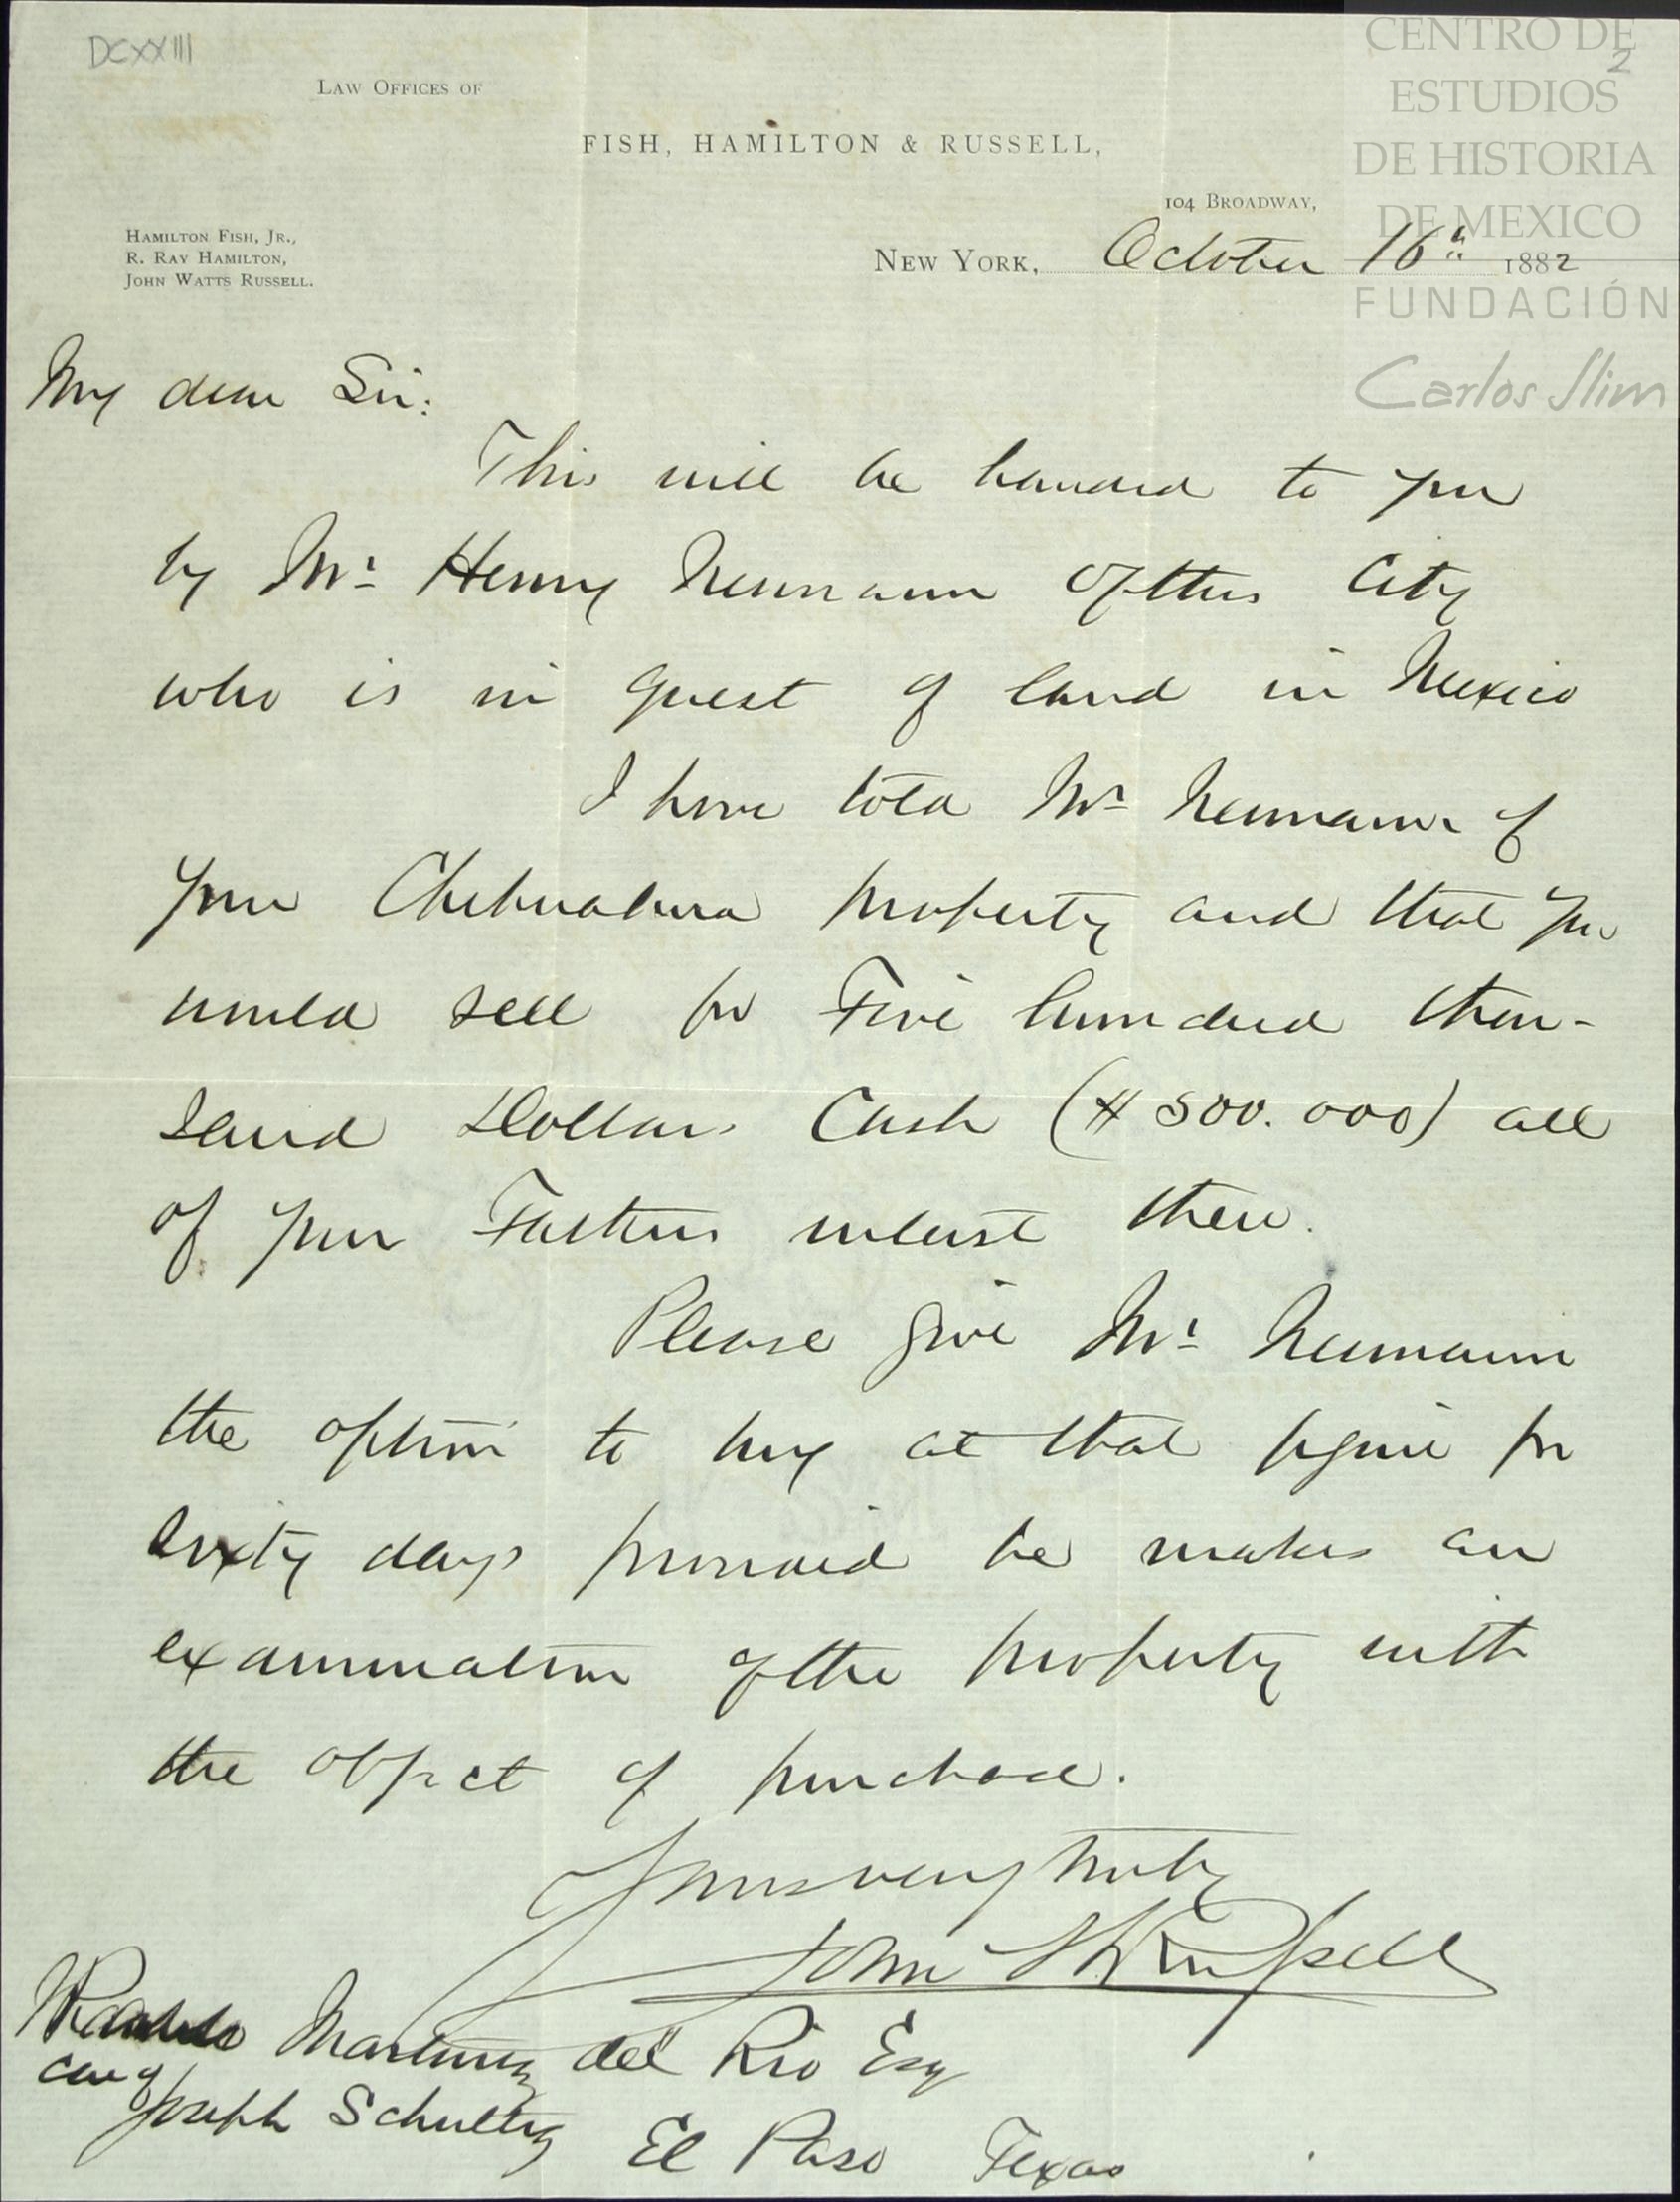 DCXXIII
2
CENTRO DE
ESTUDIOS
DE HISTORIA
DE MEXICO
FUNDACIÓN
Carlos Slim
LAW OFFICES OF
FISH, HAMILTON & RUSSELL,
104 BROADWAY,
HAMILTON FISH, JR.,
R. RAY HAMILTON,
JOHN WATTS RUSSELL.
NEW YORK, October 16th 1882
My dear Sir:
This will be handed to you
by Mr Henry Neumann of this City
who is in quest of land in Mexico
I have told Mr Neumann of
your Chihuahua property and that you
would sell for Five hundred thou-
sand Dollars Cash ($500.000) all
of your Fathers interest there.
Please give Mr Neumann
the option to buy at that figure for
sixty days provided he makes an
examination of the property with
the object of purchase.
Yours very truly
John W Russell
Martinez del Rio Esq
care of
Joseph Schultz
El Paso Texas